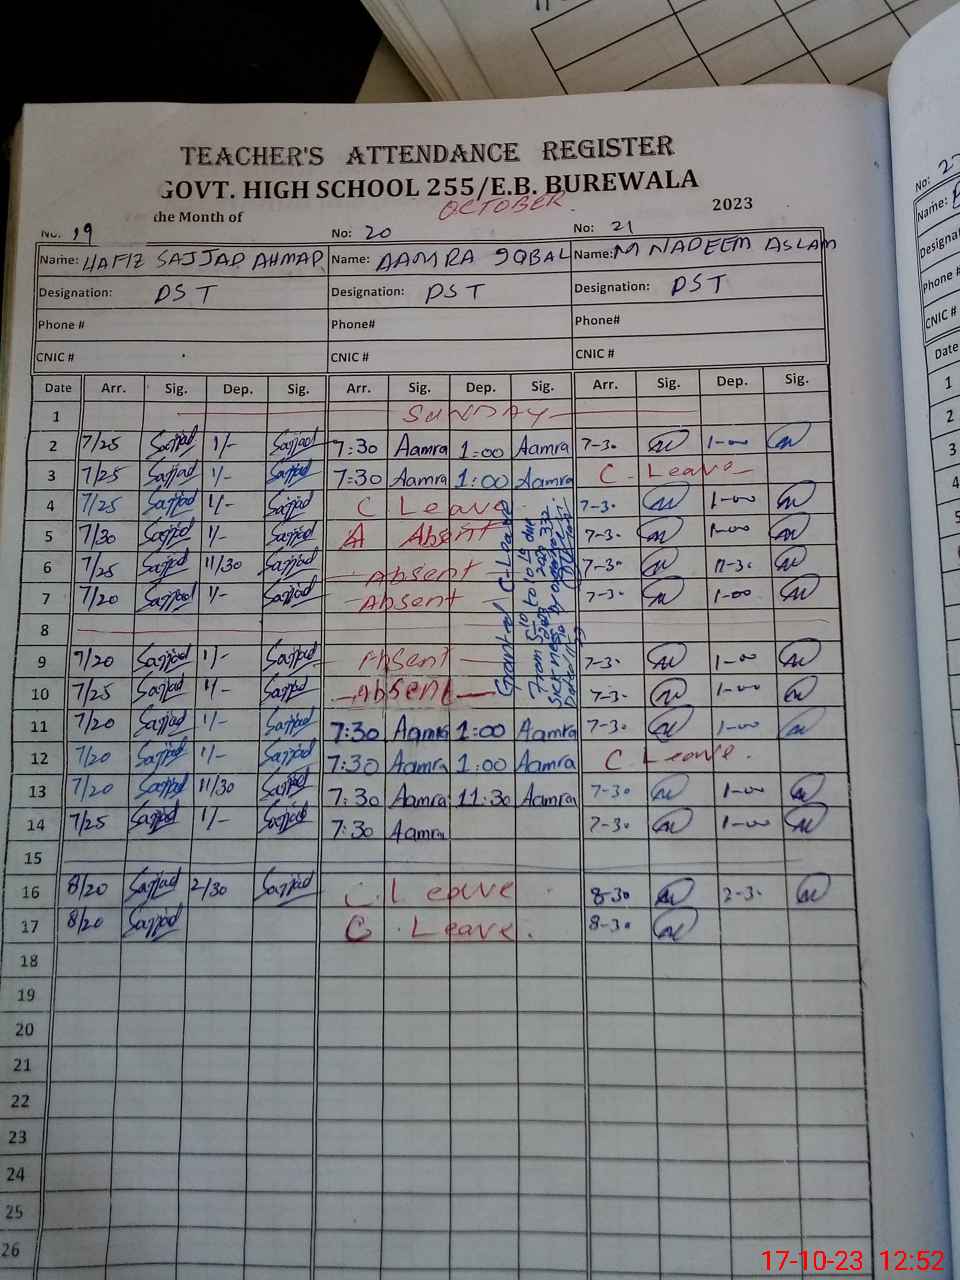 TEACHER'S ATTENDANCE REGISTER
GOVT. HIGH SCHOOL 255/E.B. BUREWALA
the Month of OCTOBER 2023
No: 19 No: 20 No: 21
Name: HAFIZ SAJJAD AHMAD Name: AAMRA IQBAL Name: M NADEEM ASLAM
Designation: PST Designation: PST Designation: PST
Phone # Phone# Phone#
CNIC # CNIC # CNIC #
Date Arr. Sig. Dep. Sig. Arr. Sig. Dep. Sig. Arr. Sig. Dep. Sig.
1 SUNDAY
2 7/25 Sajjad 1/- Sajjad 7:30 Aamra 1:00 Aamra 7-30 1-00
3 7/25 Sajjad 1/- Sajjad 7:30 Aamra 1:00 Aamra C Leave
4 7/25 Sajjad 1/- Sajjad C Leave 7-30 1-00
5 7/30 Sajjad 1/- Sajjad A Absent 7-30 1-00
6 7/25 Sajjad 11/30 Sajjad Absent 7-30 11-30
7 7/20 Sajjad 1/- Sajjad Absent 7-30 1-00
8
9 7/20 Sajjad 1/- Sajjad Absent 7-30 1-00
10 7/25 Sajjad 1/- Sajjad Absent 7-30 1-00
Granted C-Leave
From
11 7/20 Sajjad 1/- Sajjad 7:30 Aamra 1:00 Aamra 7-30 1-00
12 7/20 Sajjad 1/- Sajjad 7:30 Aamra 1:00 Aamra C Leave.
13 7/20 Sajjad 11/30 Sajjad 7:30 Aamra 11:30 Aamra 7-30 1-00
14 7/25 Sajjad 1/- Sajjad 7:30 Aamra 7-30 1-00
15
16 8/20 Sajjad 2/30 Sajjad C. Leave 8-30 2-30
17 8/20 Sajjad C. Leave. 8-30
18
19
20
21
22
23
24
25
26
No: 27
Name:
Phone #
CNIC #
Date
1
2
3
4
17-10-23 12:52